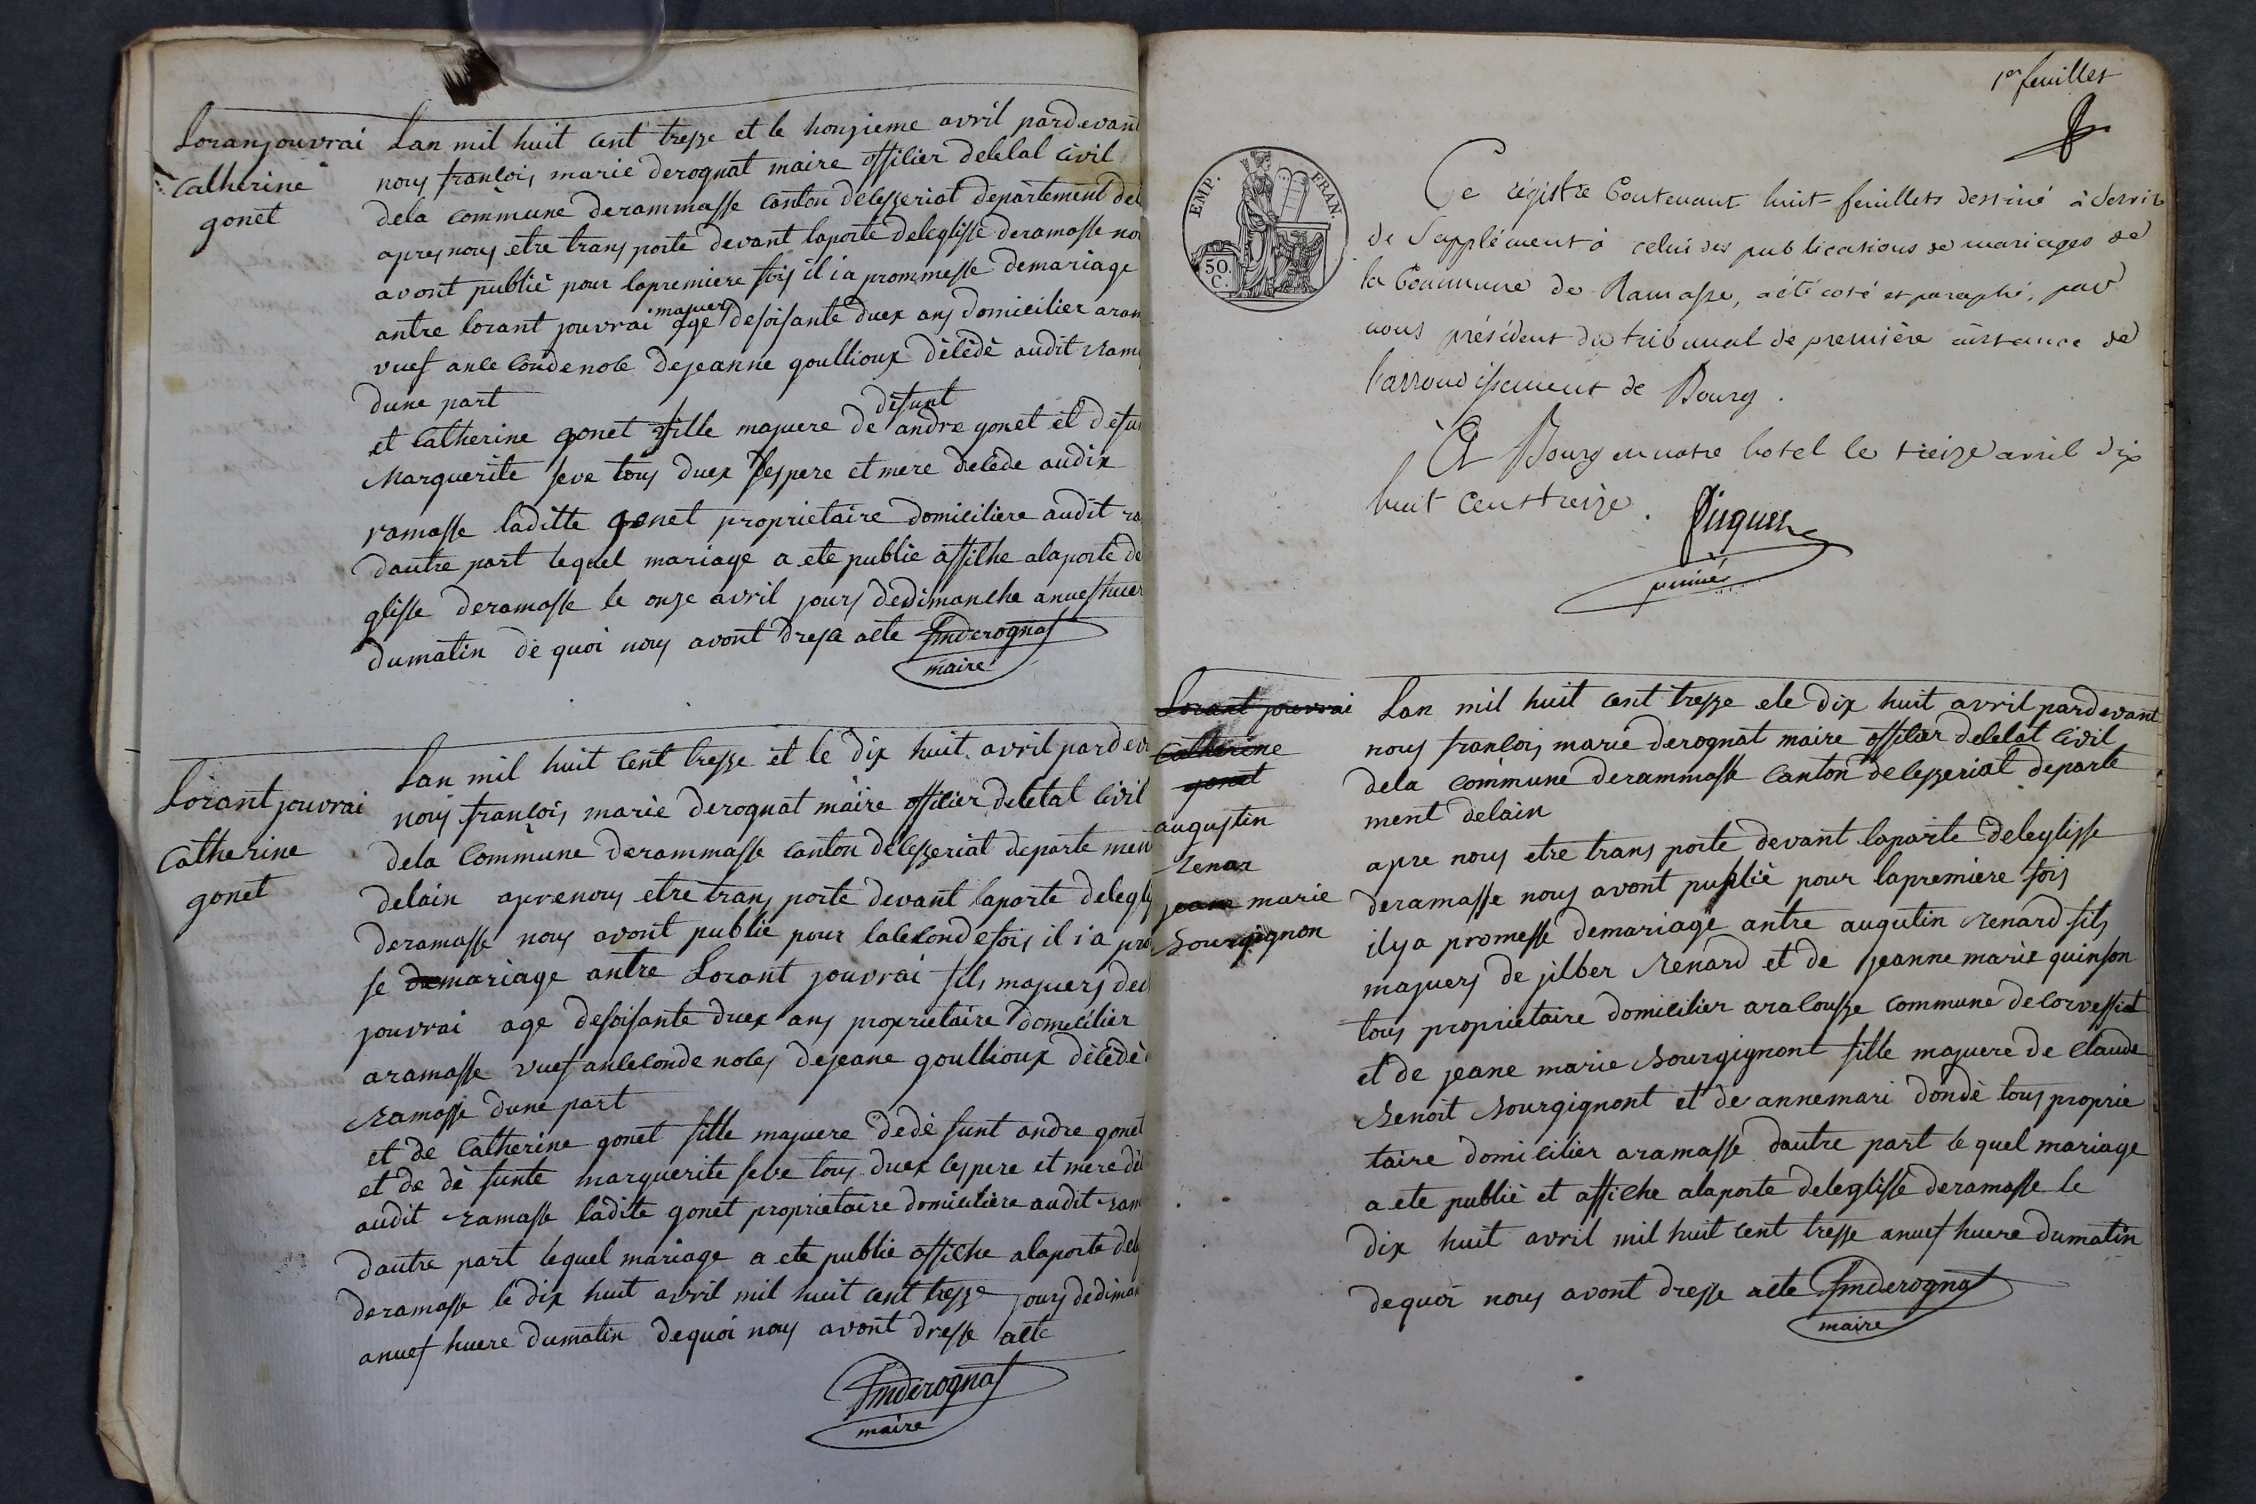 Loranjouvrai
Catherine
gonet
Lan mil huit cent tresze et le honzieme avril pardevant
nous françois marie derognat maire offilier deletat civil
dela commune derammasse canton delesseriat departement del
apres nous etre trans porte devant laporte deleglisse deramasse no
avont publié pour lapremiere fois il i a prommesse demariage
antre lorant jouvrai majuers age desoisante duex ans domicilier aram
vuef anle condenole dejeanne goullioux délédé audit Ram
dune part
et Catherine gonet fille majuere de défunt andre gonet et defu
Marguerite seve tous duex lespere et mere delede audix
ramasse laditte gonet proprietaire domiciliere audit ra
dautre part lequel mariage a ete publie affilhe alaporte de
glisse deramasse le onze avril jours dedimanche anuef huer
dumatin de quoi nous avont dresa alte fmderognat
maire
Lorant jouvrai
Catherine
gonet
Lan mil huit cent tresze et le dix huit avril pardev
nous françois marie derognat maire offilier deletat civil
dela Commune derammasse canton delesseriat departe men
delain apre nous etre trans porte devant laporte delegl
deramasse nous avont publié pour lalecondefois il i a pro
se demariage antre Lorant jouvrai fils majuers de
jouvrai age desoisante duex ans proprietaire domicilier
aramasse vuef anleconde noles dejeane goullioux délédé
Ramasse dune part
et de Catherine gonet fille majuere dedé funt andre gonet
et de dé funte marguerite seve tous duex lespere et mere dé
audit Ramasse ladite gonet proprietaire domiciliere audit Ram
dautre part lequel mariage a ete publie affilhe alaporte del
deramasse le dix huit avril mil huit cent tresze jours dediman
anuef huere dumatin dequoi nous avont dresse alte
fmderognat
maire
1er feuillet
EMP. FRAN.
50.
C.
Ce régistre Contenant huit feuillets destiné à Servir
de Supplément à celui des publications de mariages de
la Commune de Ramasse, a été coté et paraphé, par
nous président du tribunal de première instance de
l'arrondissement de Bourg.
A Bourg en notre hotel le treize avril dix
huit Cent treize.
Lorant jouvrai
Catherine
gonet
augustin
Renar
jeane marie
Bourgignon
Lan mil huit cent tresze ele dix huit avril pardevant
nous françois marie derognat maire offilier deletat civil
dela commune derammasse Canton delesseriat departe
ment delain
apre nous etre trans porte devant laporte deleglisse
deramasse nous avont publié pour lapremiere fois
il y a promesse demariage antre augutin Renard fils
majuers de jilber Renard et de jeanne marie quinson
tous proprietaire domicilier aralousze commune decorvessiat
et de jeane marie Bourgignont fille majuere de Claude
Benoit Bourgignont et de annemari dondé tous proprie
taire domicilier aramasse dautre part le quel mariage
a ete publié et affilhe alaporte deleglisse deramasse le
dix huit avril mil huit cent tresse anuef huere dumatin
dequoi nous avont dresse alte fmderognat
maire